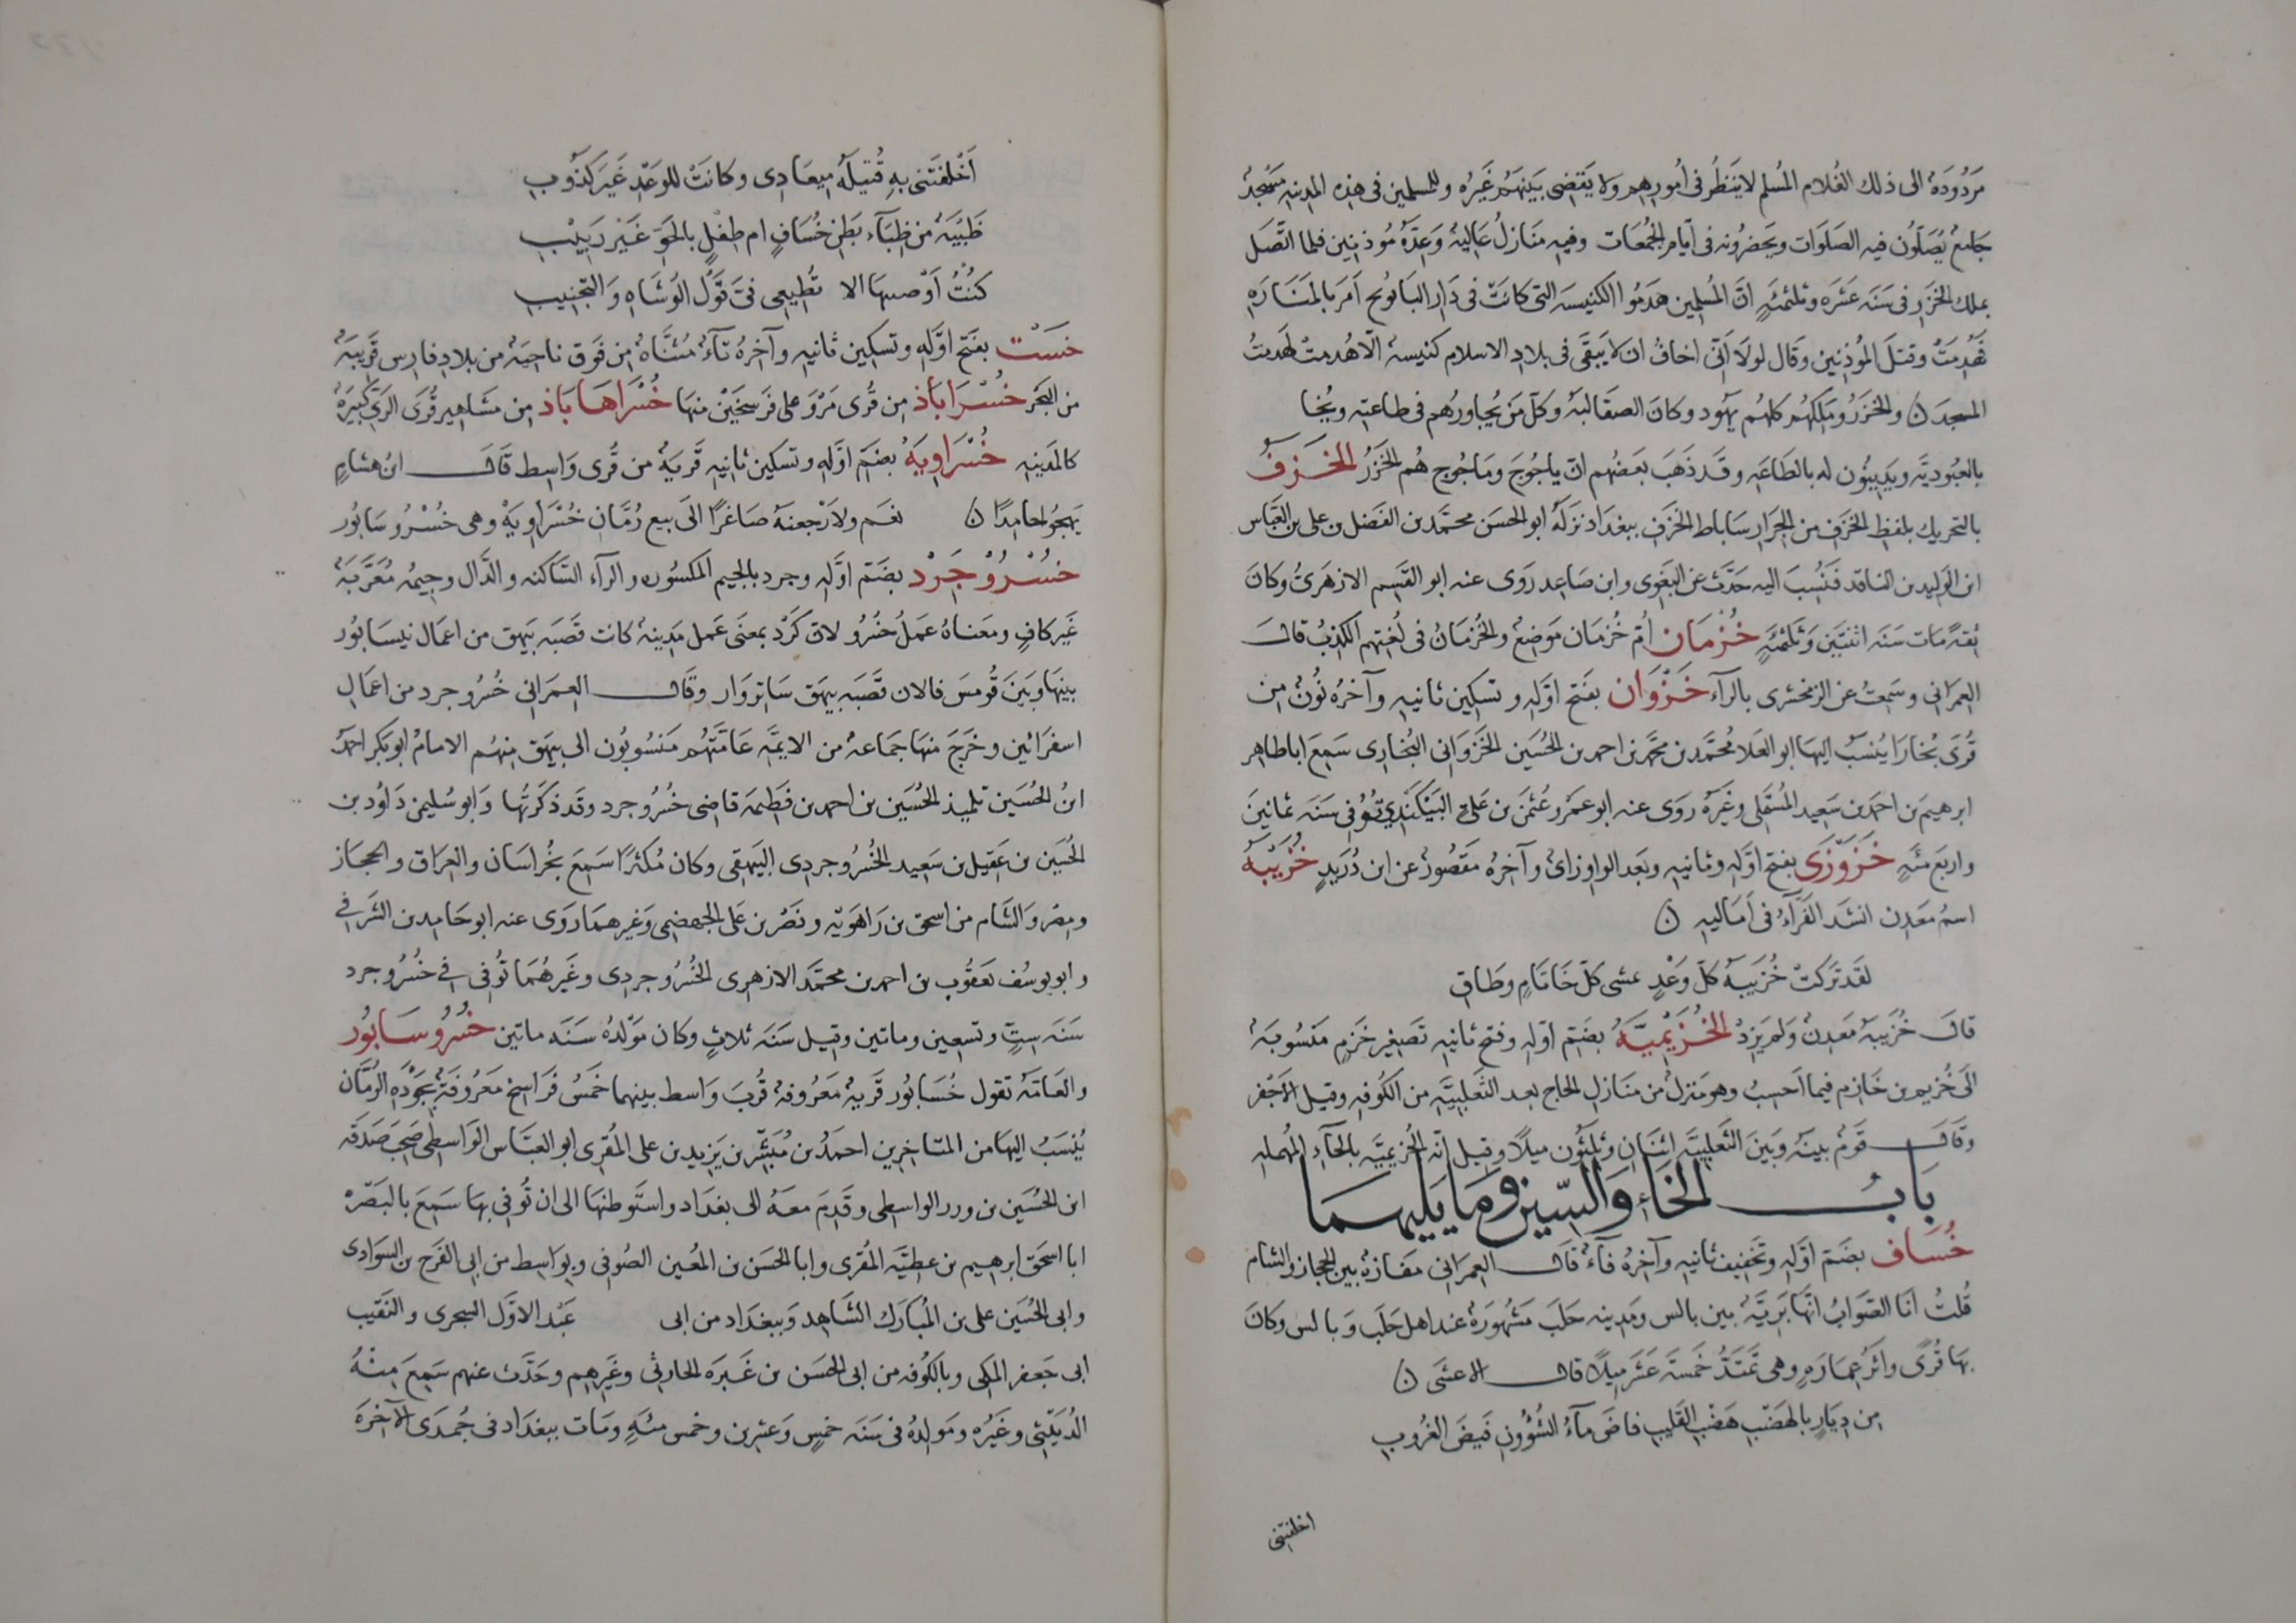 مَرْدُودَةٌ الى ذلك الغُلام المُسلم لا يَنظُر فى أمورهم ولا يَقضِى بَينَهم غَيرُه وللمسلمين فى هذه المدينه مَسْجِدٌ
جَامعٌ يُصَلّون فيه الصَلوَات ويَحضرُونه فى أيّام الجُمعَات وفيه مَنَارَلُ عَاليةٌ وَعدّةُ مُوذنين فلما اتّصَل
بملك الخَزَر فى سَنَه عَشَره وثلثمئَهٍ انّ المُسلمين هَدَمُوا الكنيسَه التى كانَتْ فى دَار البابونج أمَر بالمَنَارَه
فهُدِمَتْ وقتلَ المُوذنين وَقَال لولَا انّى اخافُ ان لا يَبقَى فى بلاد الاسلام كنيسهٌ الّا هُدمتْ لهدمتُ
المسجدَ ن والخَزَرُ ومَلِكهُم كلهُم يَهُود وكانَ الصقَالبَهُ وكلّ مَن يُجاورُهم فى طاعته ويُخا
بالعُبُوديَّه ويَدينُون له بالطَاعَه وقَد ذَهَبَ بَعضُهم انّ ياجُوجَ ومَاجُوج هُم الخَزَرُ الخَزَفُ
بالتحريك بلفظِ الخَزَفِ من الجِرَار سَاباط الخَزَفِ ببغدَاد نزَلهُ ابو الحسَن محمّد بن الفَضل بن على بن العَبَّاس
ابن الوَليد بن الناقد فَنُسِبَ اليه حَدَّثَ عن البَغَوى وابن صَاعد رَوَى عنه ابو القَسِم الازهَرىُّ وكانَ
ثقهً مَات سَنَه اثنتَين وَثَلثمئَهٍ خُزمَان أمّ خُزمَان مَوضِعٌ والخُزمَانُ فى لُغتهم الكذبُ قالَ
العمَرانى وسَمِعتُ عن الزمخشرى بالرآء خَزْوَان بفتح اوّلِه وتسكين ثانيه وآخرُه نُونٌ من
قُرَى بُخارَا يُنسَبُ اليهَا ابو العَلا مُحمَّد بن محمَّد بن احمد بن الحُسَين الخَزَوَانى البُخَارى سَمِعَ اباطاهر
ابرهيمَ بن احمَد بن سَعيد المُسْتَملى وغَيرَهُ رَوَى عنه ابو عمَرو عُثمنَ بن عَلى البَيْكندِي تُوُفى سَنَه ثمانينَ
واربَع مئَهٍ خَزَوْزَى بفتح اوّلِه وثانيه وبَعد الواو زاىٌ وآخرُه مَقصُورٌ عن ابن دُرَيدٍ خُزَيْبَهُ
اسمُ مَعدِن انشَد الفَرّآءُ فى أمَاليه ن
لقَد تَرَكتْ خُزَيبَهُ كلّ وَغْدٍ تمشى كلّ خَاتَامٍ وطَاقِ
قالَ خُزَيبَهُ مَعدنٌ وَلم يَزد الخُزَيْمِيَّهُ بضَمّ اوّله وفتح ثانيه تصَغير خَزَمٍ مَنسُوبَهٌ
الَى خُزيمه بن خَازم فيما اَحسِبُ وهو مَنزلٌ من مَنَازل الحاج بعد الثَعلَبيَّه من الكُوفه وقيل الاجفر
وقَالَ قَومٌ بينَهُ وبَينَ الثَعلبيَّه اثنَان وثلثُون ميلًا وقيل انّه الحُزيميَّه بالحَآءِ المُهمله
بَابُ الخَاءِ وَالسّين وَمَا يَليهمَا
خُسَاف بضَمّ اوّلهِ وتَخفِيف ثانيه وآخرُه فآءٌ قَالَ العِمرَانى مفَازهٌ بين الحجاز والشام
قُلتُ اَنَا الصَوَابُ انّهَا بَريَّهٌ بين بالس ومَدينه حَلَبَ مَشهُورَهٌ عند اهل حَلَب وَبالس وكانَ
بهَا قُرًى واثرُ عِمارَهٍ وهى تَمتَدُّ خمسَهَ عَشَر ميلًا قالَ الاعشَى ن
من دِيَارٍ بالهَضْبِ هَضْبِ القَليبِ فاضَ مآءُ الشُؤونِ فَيضَ الغُروبِ
اخلفتنى
اَخْلَفَتنى بهِ قُتيلَهُ ميعَادى وكانَتْ للوَعْدِ غَيرَ كَذُوبِ
ظَبْيَهٌ من ظِبَآءِ بَطنِ خُسَافٍ ام طفْلٍ بالجوِّ غَيرِ رَبيْبِ
كنْتُ اَوْصيتهَا الا تُطيعى فىَّ قَوْلَ الوُشَاهِ وَالتجنيبِ
خَسْت بفتح اوّلهِ وتسكين ثانيه وآخرُهُ تآءٌ مُثنَّاهٌ من فَوق ناحِيَهٌ من بلاد فارس قَريبَهٌ
من البَحر خُسْرَاباذ من قُرى مَرْوَ على فَرسخَيْن منهَا خُسْرَاهَابَاذ من مشاهير قُرَى الرَى كبيرَهٌ
كالمَدينه خُسْرَاويَهُ بضَمّ اوّلهِ وتسكين ثانيه قَريَهٌ من قُرى وَاسِط قَالَ ابن هشامٍ
يَهجُو حامدًا ن نعَم ولارْجعنهُ صَاغرًا الَى بيع رُمَّانِ خُسْرَاويَهْ وهى خُسْرُو سَابُور
خُسْرُوْجَرْد بضَمّ اوَّله وجرد بالجيم المكسُوره والرآء السَّاكنه والدَّال وجيمُه مُعَرَّبَهٌ
غَير كافٍ ومَعناهُ عَملُ خُسْرُو لانّ كَرْد بمعنَى عَمل مَدينهٌ كانت قَصَبَه بَيهَق من اعمَال نيسَابُور
بينهَا وبَينَ قُومسَ فالان قَصَبَه بيهَق سَابزوَار وقَالَ العمَرانى خُسْرُوجرد من اعمَالِ
اسفرَائين وخَرَجَ منهَا جَمَاعهٌ من الايمَّه عَامَّتهُم مَنسُوبُون الى بيهَق منهُم الامامُ ابو بكر احمدُ
ابنُ الحسَين تلميذ الحُسَين بن احمد بن فَطيمَه قاضِى خُسْرُوجرد وقَد ذكَرتُها وَابو سُليمن دَاوُد بن
الحُسَين بن عَقيل بن سَعيد الخُسْرُوجردى البَيهَقى وكان مُكثرًا سَمِعَ بخُراسَان والعِرَاق والحجَاز
ومِصر وَالشَام من اسحق بن رَاهَوَيْه ونَصْر بن عَلى الجهضمِى وَغيرهمَا رَوَى عنه ابو حَامد بن الشَرقى
وابو يوسُف يَعقُوب بن احمد بن محمَّد الازهرى الخُسْرُوجردى وغَيرهُمَا تُوفى فى خُسْرُوجرد
سَنَه سِتٍّ وتسعين وماتين وقيل سَنَه ثلاثٍ وكان مَوْلدُه سَنَه ماتين خُسْرُو سَابُور
والعامَّهُ تقول خُسَابُور قَريهٌ مَعرُوفهٌ قُربَ وَاسط بينهما خمسُ فَراسخ مَعرُوفَهٌ بجَوْدَهِ الرُمَّان
يُنسَبُ اليهَا من المتاخرين احمَدُ بن مُبَشِّر بن يَزيد بن على المُقرِى ابو العبَّاس الوَاسِطى صَحِبَ صَدَقَه
ابن الحُسَين بن وزير الواسطى وقَدِمَ معَهُ الى بغدَاد واستَوطنهَا الى ان تُوفى بهَا سَمِعَ بالبَصْرَه
ابا اسحَق ابرهيم بن عطيَّه المُقرى وابا الحسَن بن المُعين الصُوفى وبوَاسِط من ابى الفَرج بن السَوادى
وابى الحُسَين على بن المُبَارَك الشَاهد وَببغدَاد من ابى عَبْد الاوَّل السجزى والنَقيب
ابى جَعفر المكى وبالكُوفه من ابى الحسَن بن غَبرَه الحارثى وغَيرهم وحَدَّث عنهم سَمِعَ مِنْهُ
الدُبَيْثى وغَيرُه ومَولدُهُ فى سَنَه خمسٍ وَعشرين وخمس مئَهٍ ومَات ببغدَاد فى جُمدَى الآخرَه